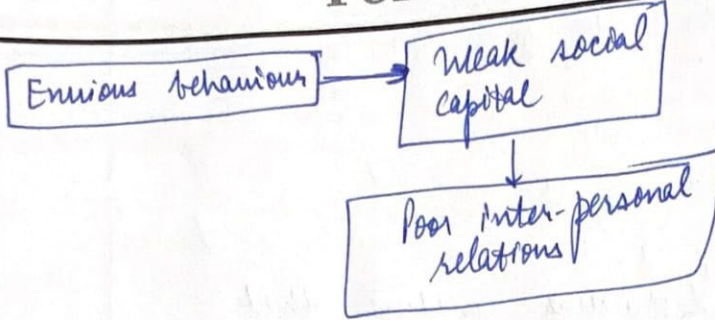 Envious behaviour
Weak social
capital
Poor inter-personal
relations